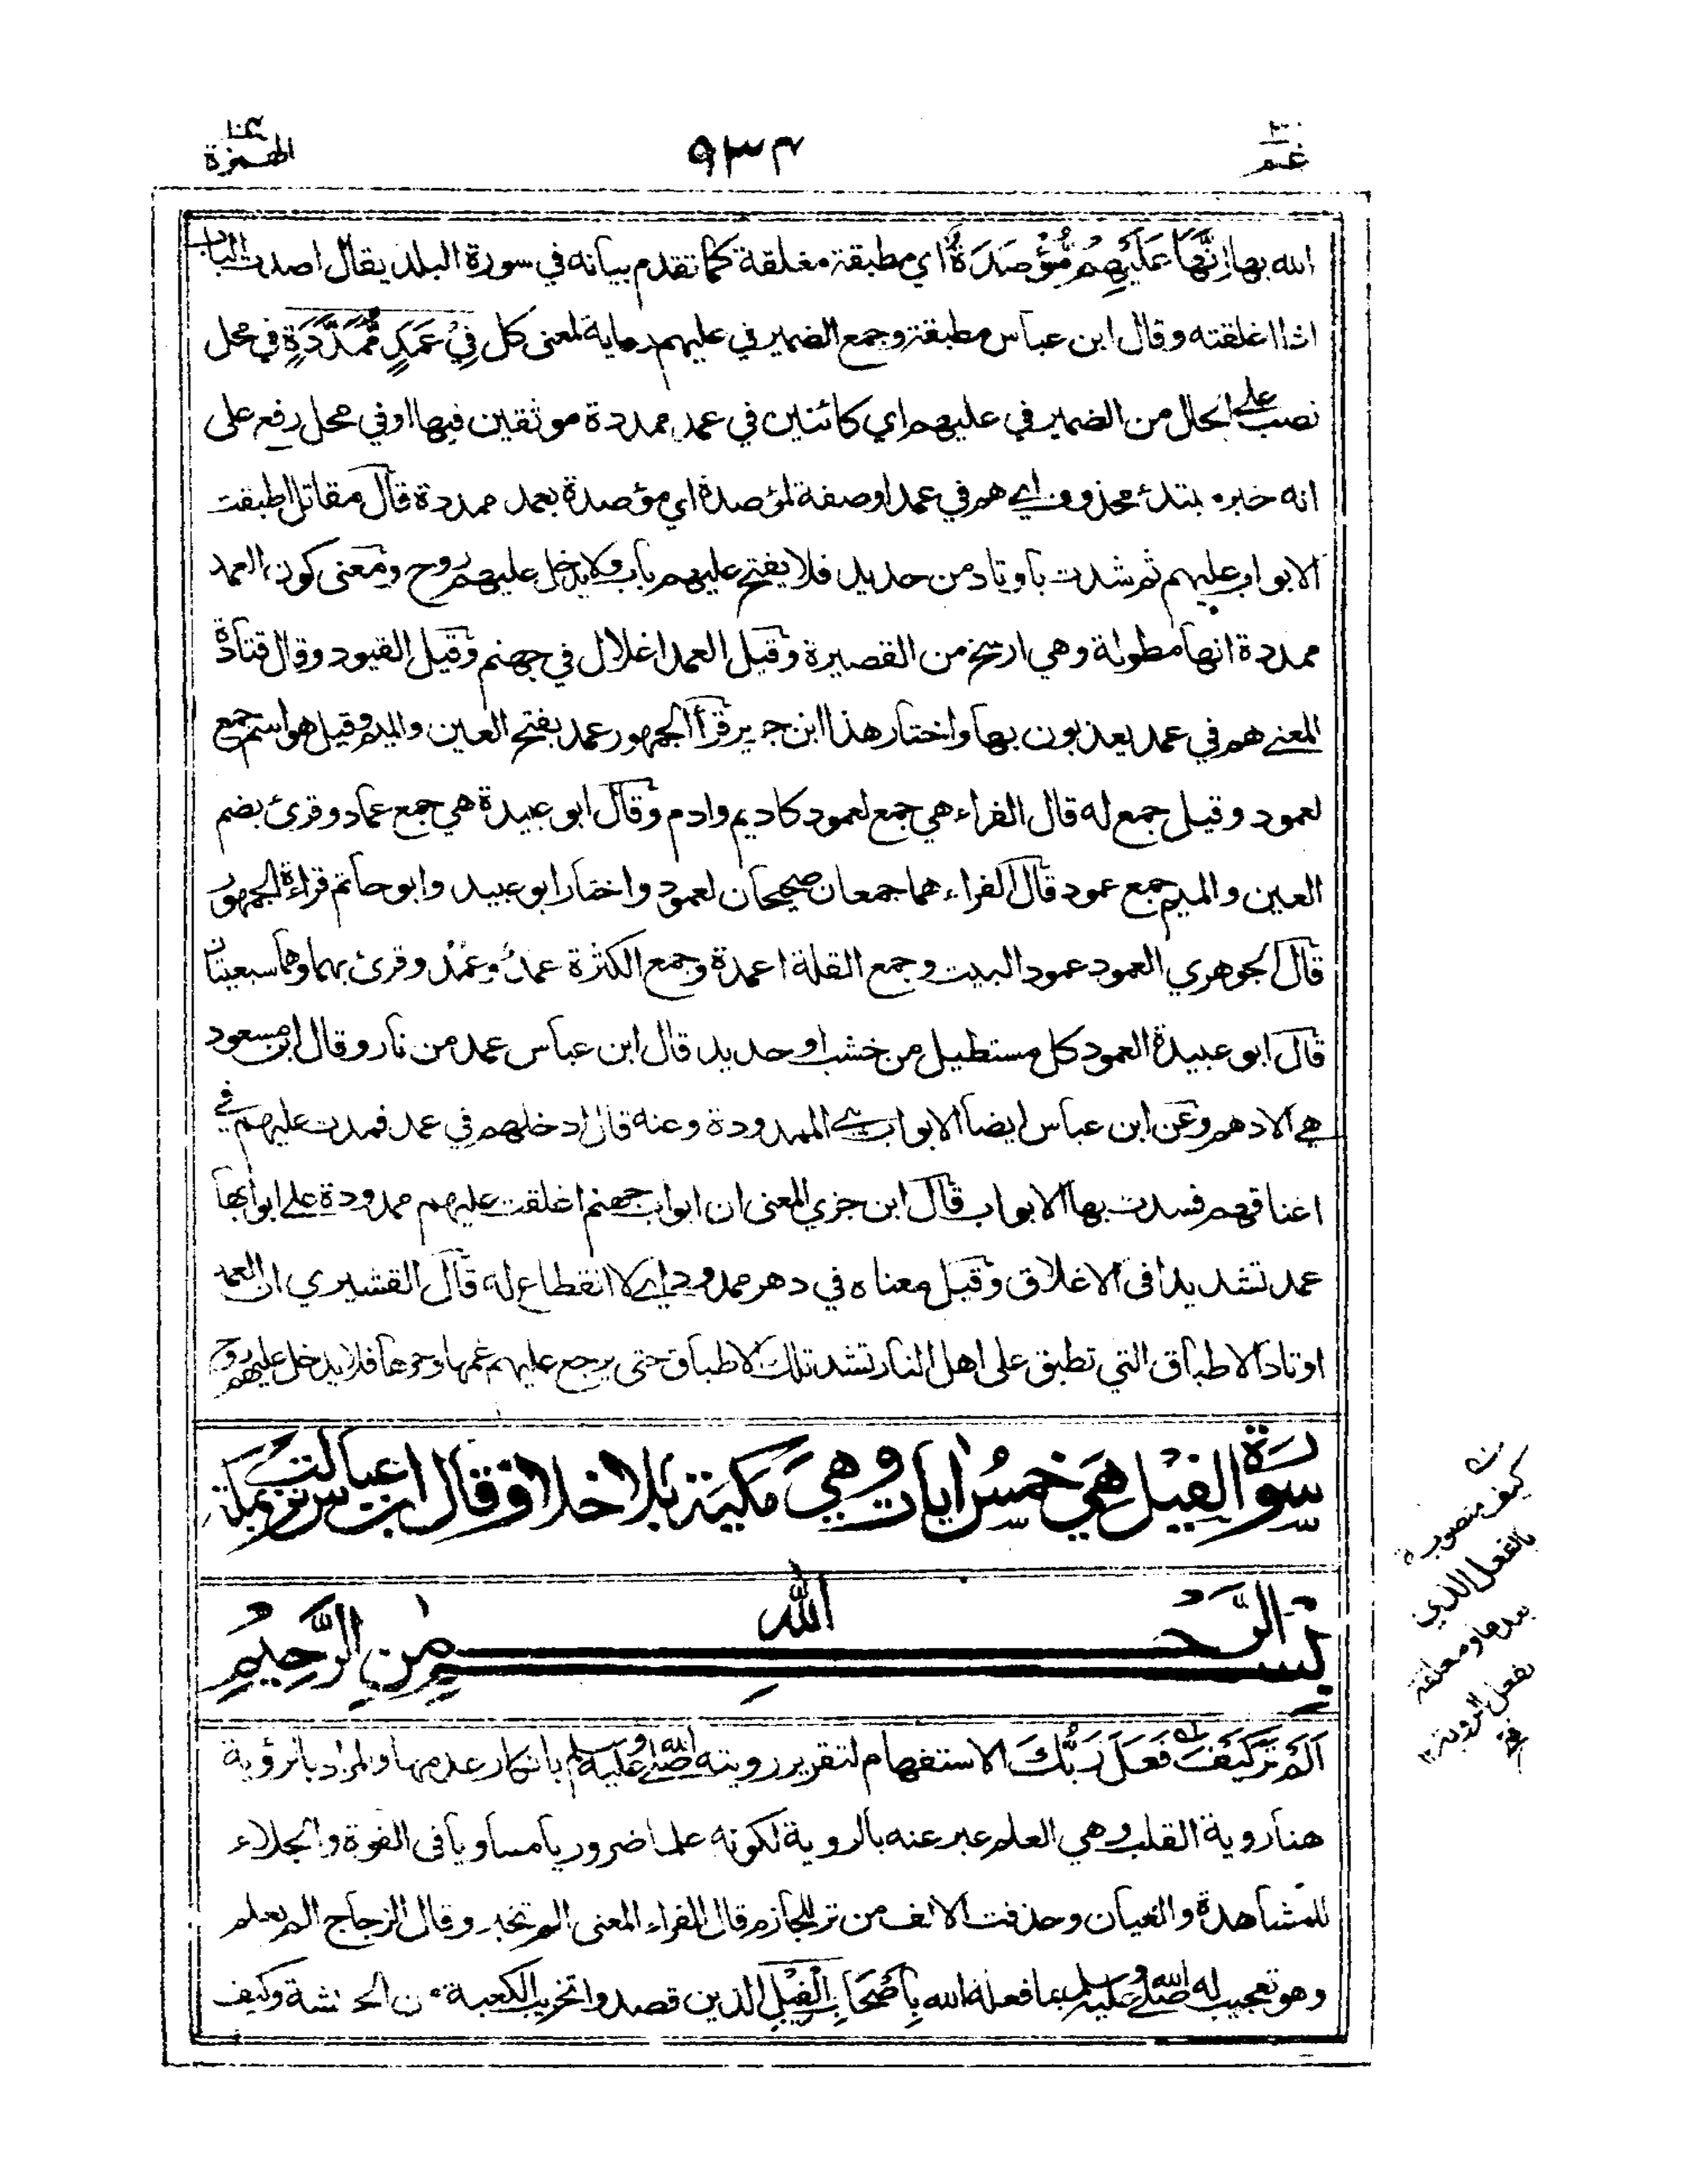 عم ٣٠
٩٣٤
الهمزة ١٠٤
الله بها اِنَّهَا عَلَيْهِمْ مُّؤْصَدَةٌ اي مطبقة مغلقة كما تقدم بيانه في سورة البلد يقال اصدت الباب
اذا اغلقته وقال ابن عباس مطبقة وجمع الضمير في عليهم رعاية لمعنى كل فِيْ عَمَدٍ مُّمَدَّدَةٍ في محل
نصب على الحال من الضمير في عليهم اي كائنين في عمد ممددة موثقين فيها او في محل رفع على
انه خبر مبتدئ محذوف اي هم في عمد او صفة لمؤصدة اي مؤصدة بعمد ممددة قال مقاتل اطبقت
الابواب عليهم ثم شدت باوتاد من حديد فلا يفتح عليهم باب ولا يدخل عليهم روح ومعنى كون العمد
ممددة انها مطولة وهي ارسخ من القصيرة وقيل العمد اغلال في جهنم وقيل القيود وقال قتادة
المعنى هم في عمد يعذبون بها واختار هذا ابن جرير قرأ الجمهور عمد بفتح العين والميم وقيل هو اسم جمع
لعمود وقيل جمع له قال الفراء هي جمع لعمود كاديم وادم وقال ابو عبيدة هي جمع عماد وقرئ بضم
العين والميم جمع عمود قال الفراء هما جمعان صحيحان لعمود واختار ابو عبيد وابو حاتم قراءة الجمهور
قال الجوهري العمود عمود البيت وجمع القلة اعمدة وجمع الكثرة عمدٌ وعُمُدٌ وقرئ بهما وهما سبعيتان
قال ابو عبيدة العمود كل مستطيل من خشب او حديد قال ابن عباس عمد من نار وقال ابن مسعود
هي الادهم وعن ابن عباس ايضا الابواب هي الممدودة وعنه قال ادخلهم في عمد فمدت عليهم في
اعناقهم فسدت بها الابواب قال ابن جزي المعنى ان ابواب جهنم اغلقت عليهم ممدودة على ابوابها
عمد تشديدا فى الاغلاق وقيل معناه في دهر ممدود اي لا انقطاع له قال القشيري ان العمد
اوتاد الاطباق التي تطبق على اهل النار تشد تلك الاطباق حتى يرجع عليهم غمها وحرها فلا يدخل عليهم روح
سورة الفيل هي خمس ايات وهي مكية بلا خلاف وقال ابن عباس نزلت بمكة
بِسْمِ اللهِ الرَّحْمٰنِ الرَّحِيْمِ
اَلَمْ تَرَ كَيْفَ فَعَلَ رَبُّكَ الاستفهام لتقرير رويته صلى الله عليه وسلم بانكار عدمها والمراد بالرؤية
هنا روية القلب وهي العلم عبر عنه بالروية لكونه علما ضروريا مساويا فى القوة والجلاء
للمشاهدة والعيان وحذفت الالف من تر للجازم قال الفراء المعنى الم تخبر وقال الزجاج الم تعلم
وهو تعجيب له صلى الله عليه وسلم بما فعله الله بِاَصْحَابِ الْفِيْلِ الذين قصدوا تخريب الكعبة من الحبشة وكيف
كيف منصوبة
بالفعل الذي
بعدها ومعلقة
بفعل الروية ١٢